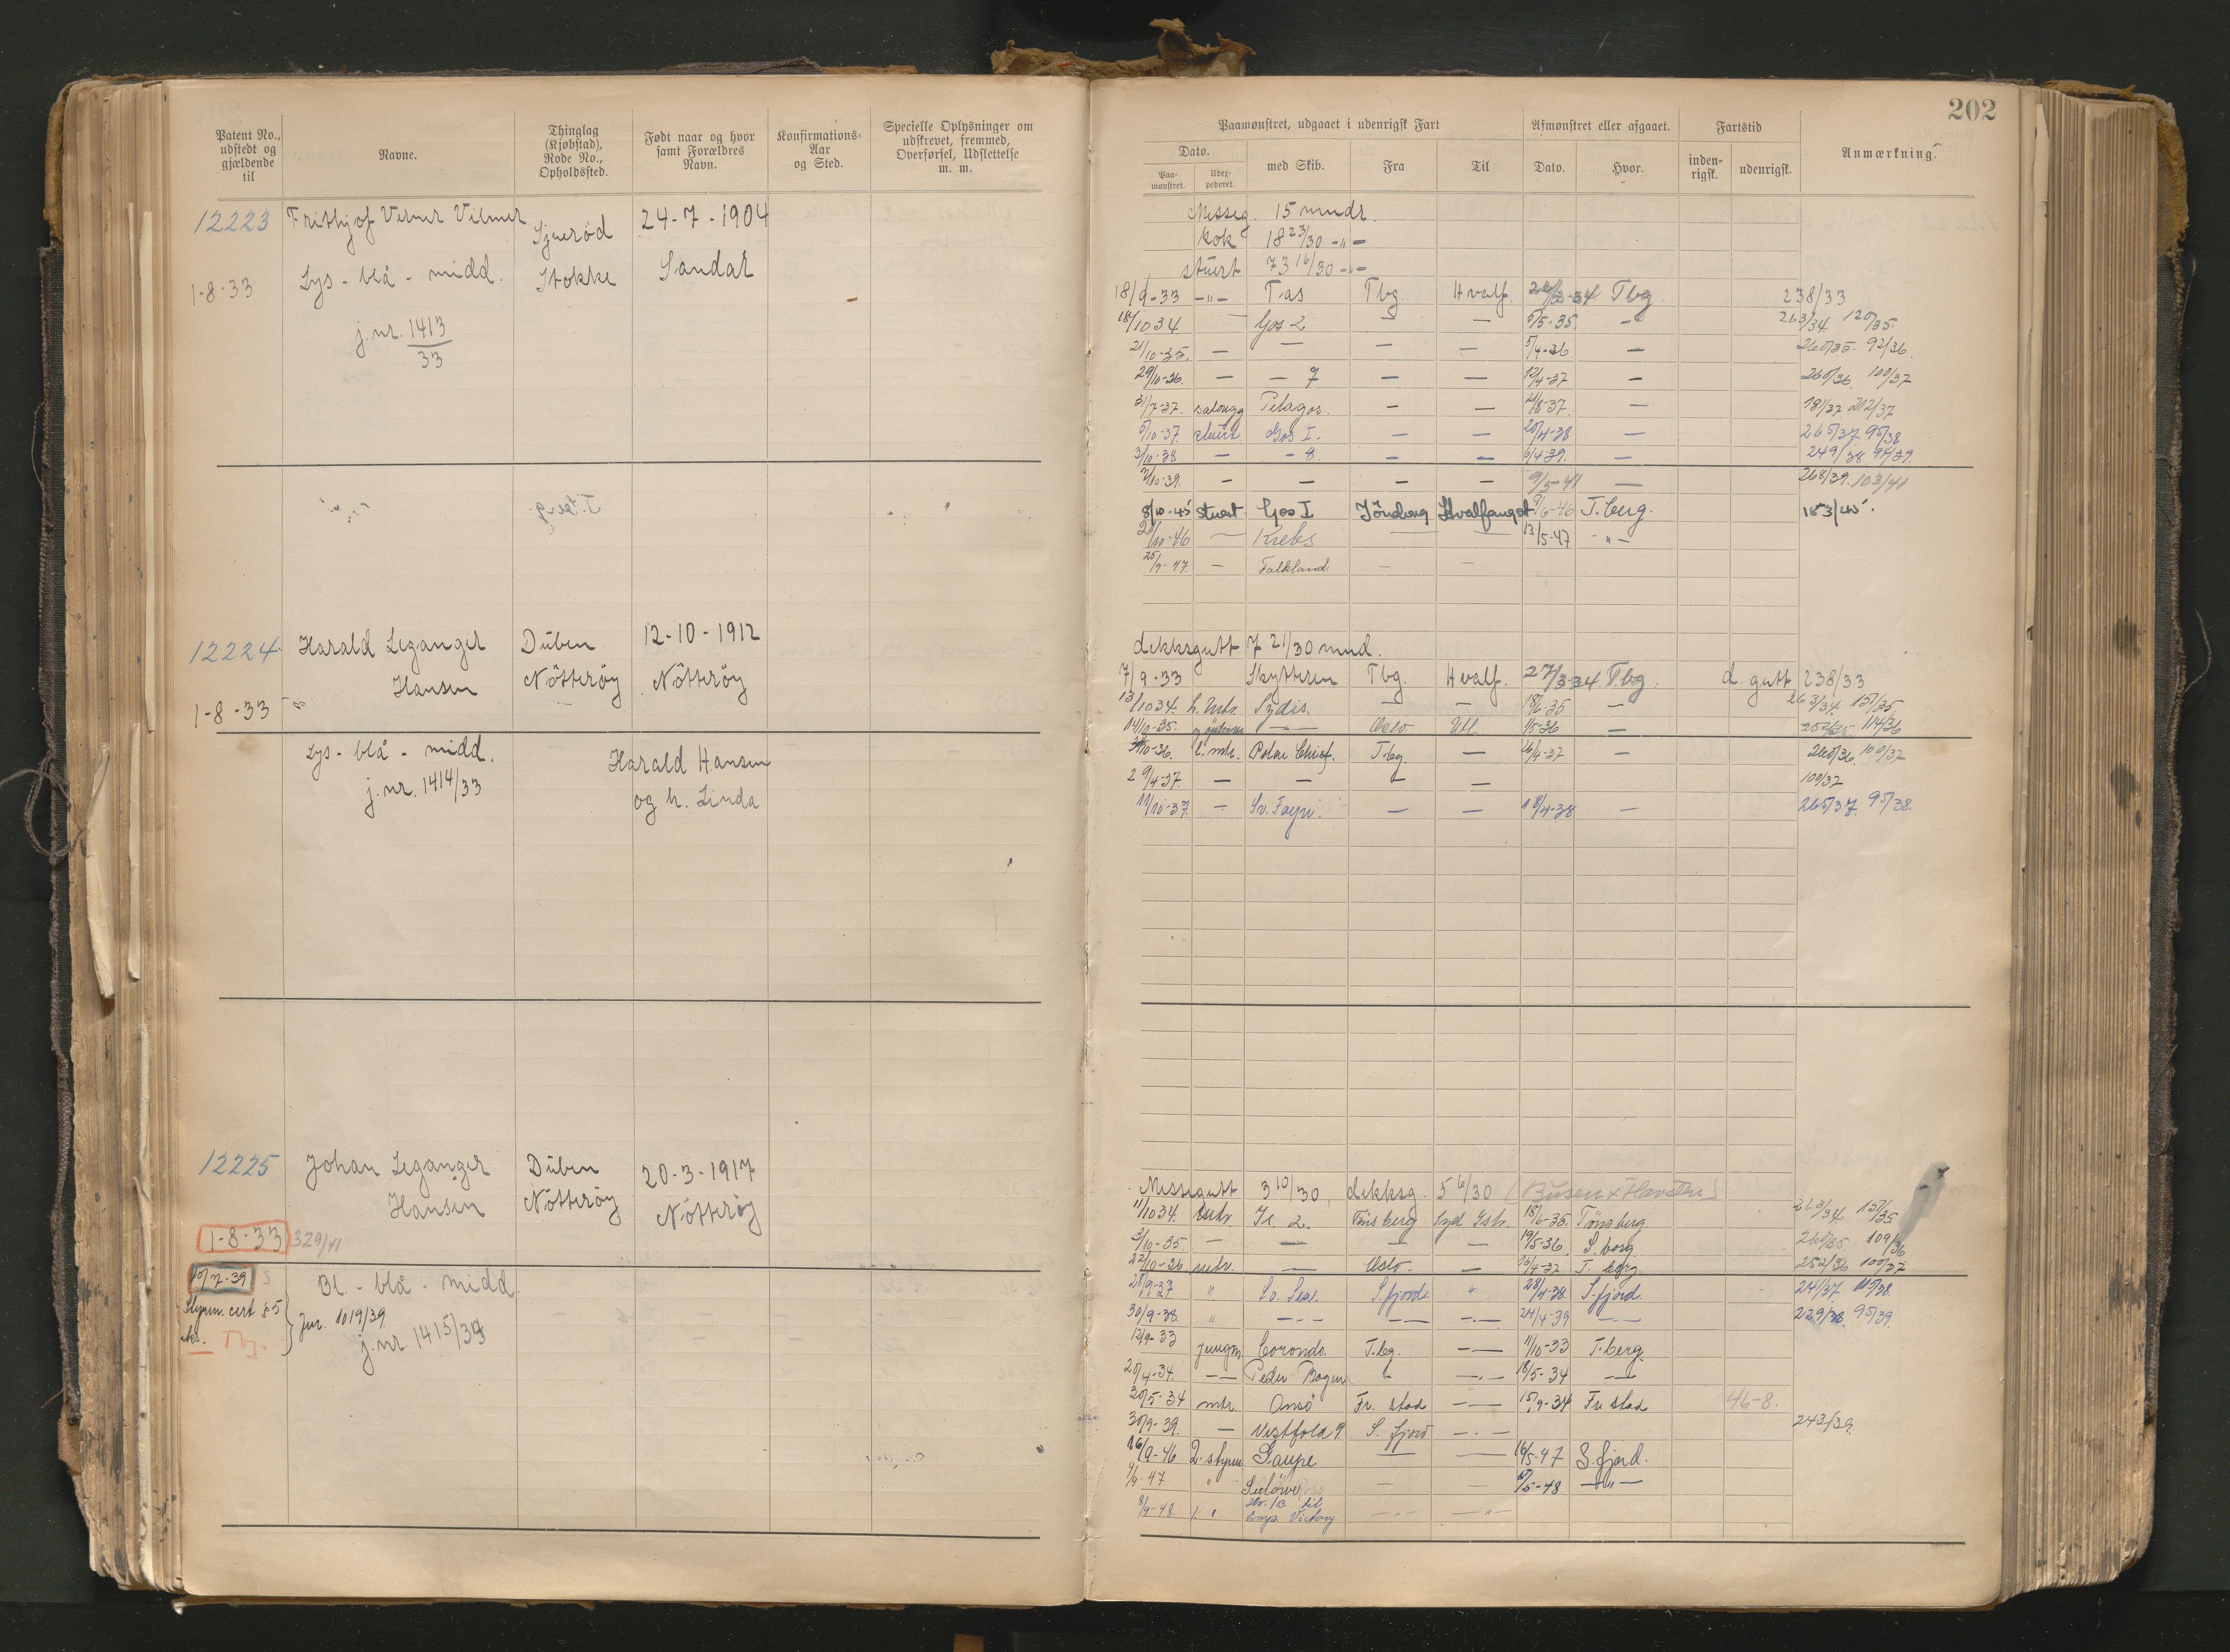 Patent No., udstedt og gjældende til
Navne.
Thinglag (Kjøbstad), Rode No., Opholdssted.
Født naar og hvor samt Forældres Navn.
Konfirmations-Aar og Sted.
Specielle Oplysninger om udskrevet, fremmed, Overførsel, Udslettelse m. m.
12223 Frithjof Verner Vilmer
24-7-1904
Stokke
Sandar
1-8-33 Lys - blå - midd.
j.nr. 1413/33
12224 Harald Leganger Hansen
Duben Nötteröy
12-10-1912
Nötteröy
1-8-33
Lys - blå - midd.
j.nr. 1414/33
Harald Hansen
og h. Linda
12225 Johan Leganger Hansen
Duben Nötteröy
20-3-1917
Nötteröy
1-8-33 329/41
10/7-39
Bl. - blå - midd.
Styrm. cert §5
Jnr. 1019/39
j.nr. 1415/39
202
Paamønstret, udgaaet i udenrigsk Fart
Afmønstret eller afgaaet.
Fartstid
Anmærkning.
Dato.
Paamønstret.
Udexpederet.
med Skib.
Fra
Til
Dato.
Hvor.
indenrigsk.
udenrigsk.
Messeg. 15 mndr.
Kok 18 23/30 -"-
stuert 73 16/30 -"-
18/9-33 -"- Tas Tbg. Hvalf. Tbg 238/33
18/10 34. — Gos 2 — — 5/5-35. — 263/34 120/35.
21/10-35. — — — — 5/4-36 — 260/35. 92/36.
29/10-36. — — 7 — — 12/4-37 — 260/36. 100/37
31/7-37. Pelagos. — — 21/8-37. — 181/37 212/37
5/10-37. stuert. Gos I. — — 20/4-38 — 265/37 95/38
3/10-38 — - 8. — — 6/4-39. — 249/38. 94/39.
— — — — 9/5-41 — 268/39. 103/41
8/10-45 stuert Gos I Tönsberg Hvalfangst T.berg. 153/45.
— Krebs — — 13/5-47 -"-
25/9-47. — Falkland. — —
dekksgutt 7 21/30 mnd.
7/9-33 Skytteren Tbg. Hvalf. 27/3-34. Tbg. d. gutt 238/33
13/10 34. Sydis. — — 18/6-35 — 263/34. 157/35
14/10-35. — Oslo Utl. — 114/36
l. mtr. Polar Chief. T.bg. — 26/4-37 — 260/36. 100/37
29/4-37. — — — — 100/37
11/10-37. — Sv. Foyn. — — 18/4-38 — 265/37. 95/38.
Messegutt 3 10/30, dekksg. 5 6/30 (Busen x Havsten)
11/10 34. Tönsberg Syd 18/6-35. Tönsberg. 263/34. 157/35
3/10-35. — — — — 19/5-36. 109/36
22/10-36 — Oslo - T. berg. 252/36 100/37
" S.fjord " 28/4-38. S.fjord.
30/9-38. " —"— — — 24/4-39 —"— 229/38. 95/39.
12/9-33 jungm. Corondo. T.bg. — 11/10-33 T.berg.
20/4-34. — Peder Bogen — — 18/5-34 —
30/5-34 mtr. Onsö Fr. stad — 15/9-34 Fr. stad 46-8.
30/9-39. — Vestfold 9. S. fjord — 243/39.
16/9-46 2. styrm Gaupe — — 16/5-47 S.fjord.
9/9-47. " — — 5/5-48 —"—
8/9-48. Emp. Victory — —